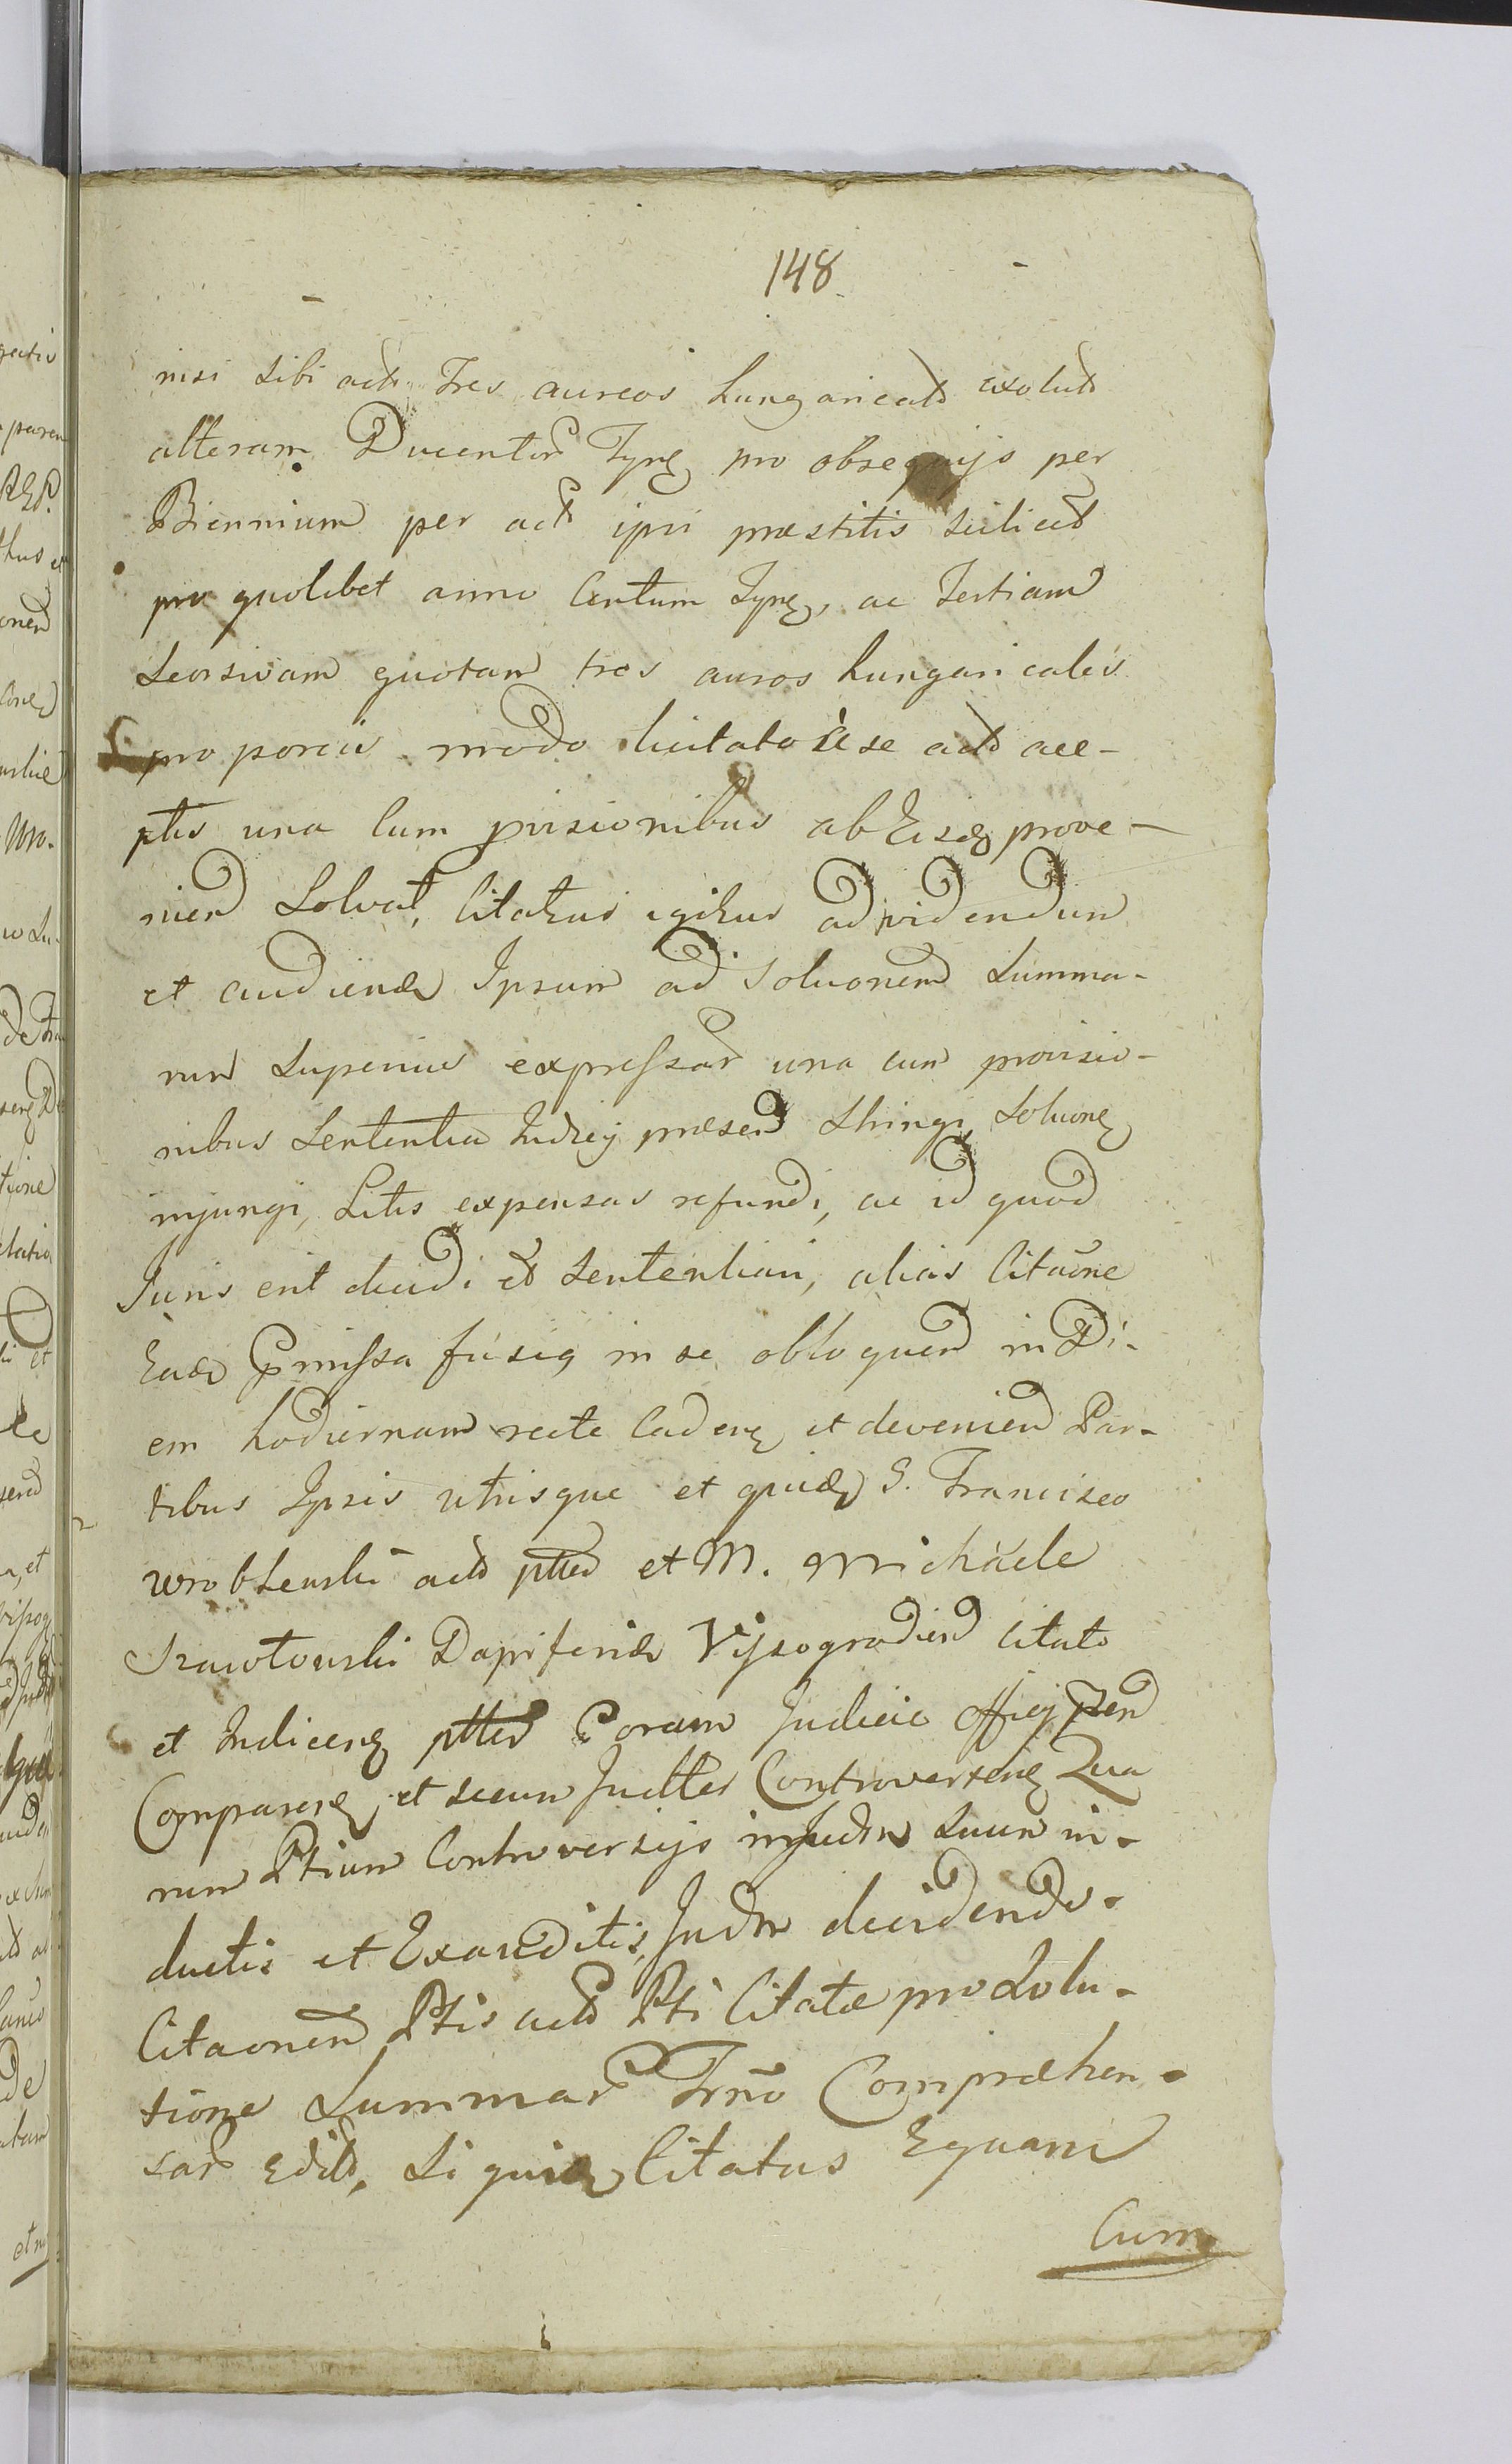 148
nisi sibi actr. Tres aureos hungaricald exolutd
alteram Ducentor Tynf pro obsequijs per
Biennium per actr ipsi præstitis scilicet
pro quolibet anno Centum Tynf, ac Tertiam
Seorsivam quotam tres auros hungaricales
pro porcis modo licitatorie se actd acce-
ptis una Cum provisionibus ab Eisdem prove-
niend Solvat, Citatus igitur ad videndum
et audiendum Ipsum ad Soluonem Summa-
rum Superius expressar una cum provisio-
nibus Sententia Iudicij præsend Stringi, Soluonem
injungi, Litis expensas refundi, ac id quod
Juris erit decidi et Sententiari, alias Citaōne
Eadem præmissa fusius in se obloquend in Di-
em hodiernam recte Caden et devenien Par-
tibus Ipsis utrisque et quidem G. Francisco
Wroblewski actd ptted et M. Michaele
Szawłowski Dapiferida Vyszogradiend Citato
et Indicens ptted Coram Judicio officij præsend
Comparens, et secum Judtter Controvertens Qua
rum Ptium Controversijs in Judm Suum in-
ductis et Exauditis, Judm decidendo.
Citaonem Ptis actd Pti Citatæ pro Solu-
tione Summar Trno Compræhen-
sar Edidt, Si quidem Citatus Equam
Cum